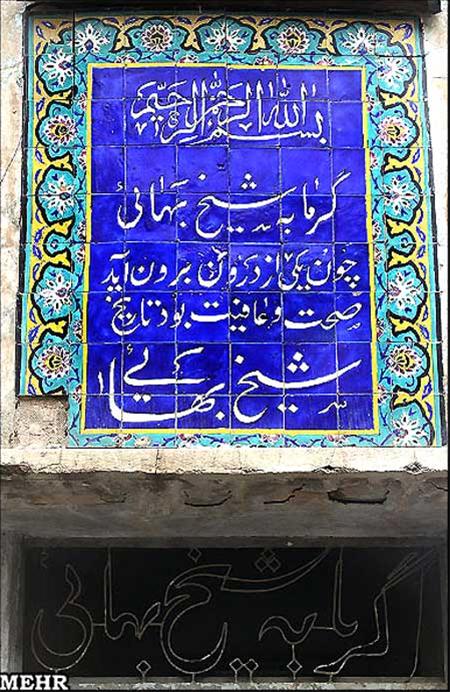 بسم الله الرحمن الرحیم
گرمابه شیخ بهائی
چون یکی از درون برون آید
صحت و عافیت بود تاریخ
شیخ بهائی
گرمابه شیخ بهائی
MEHR